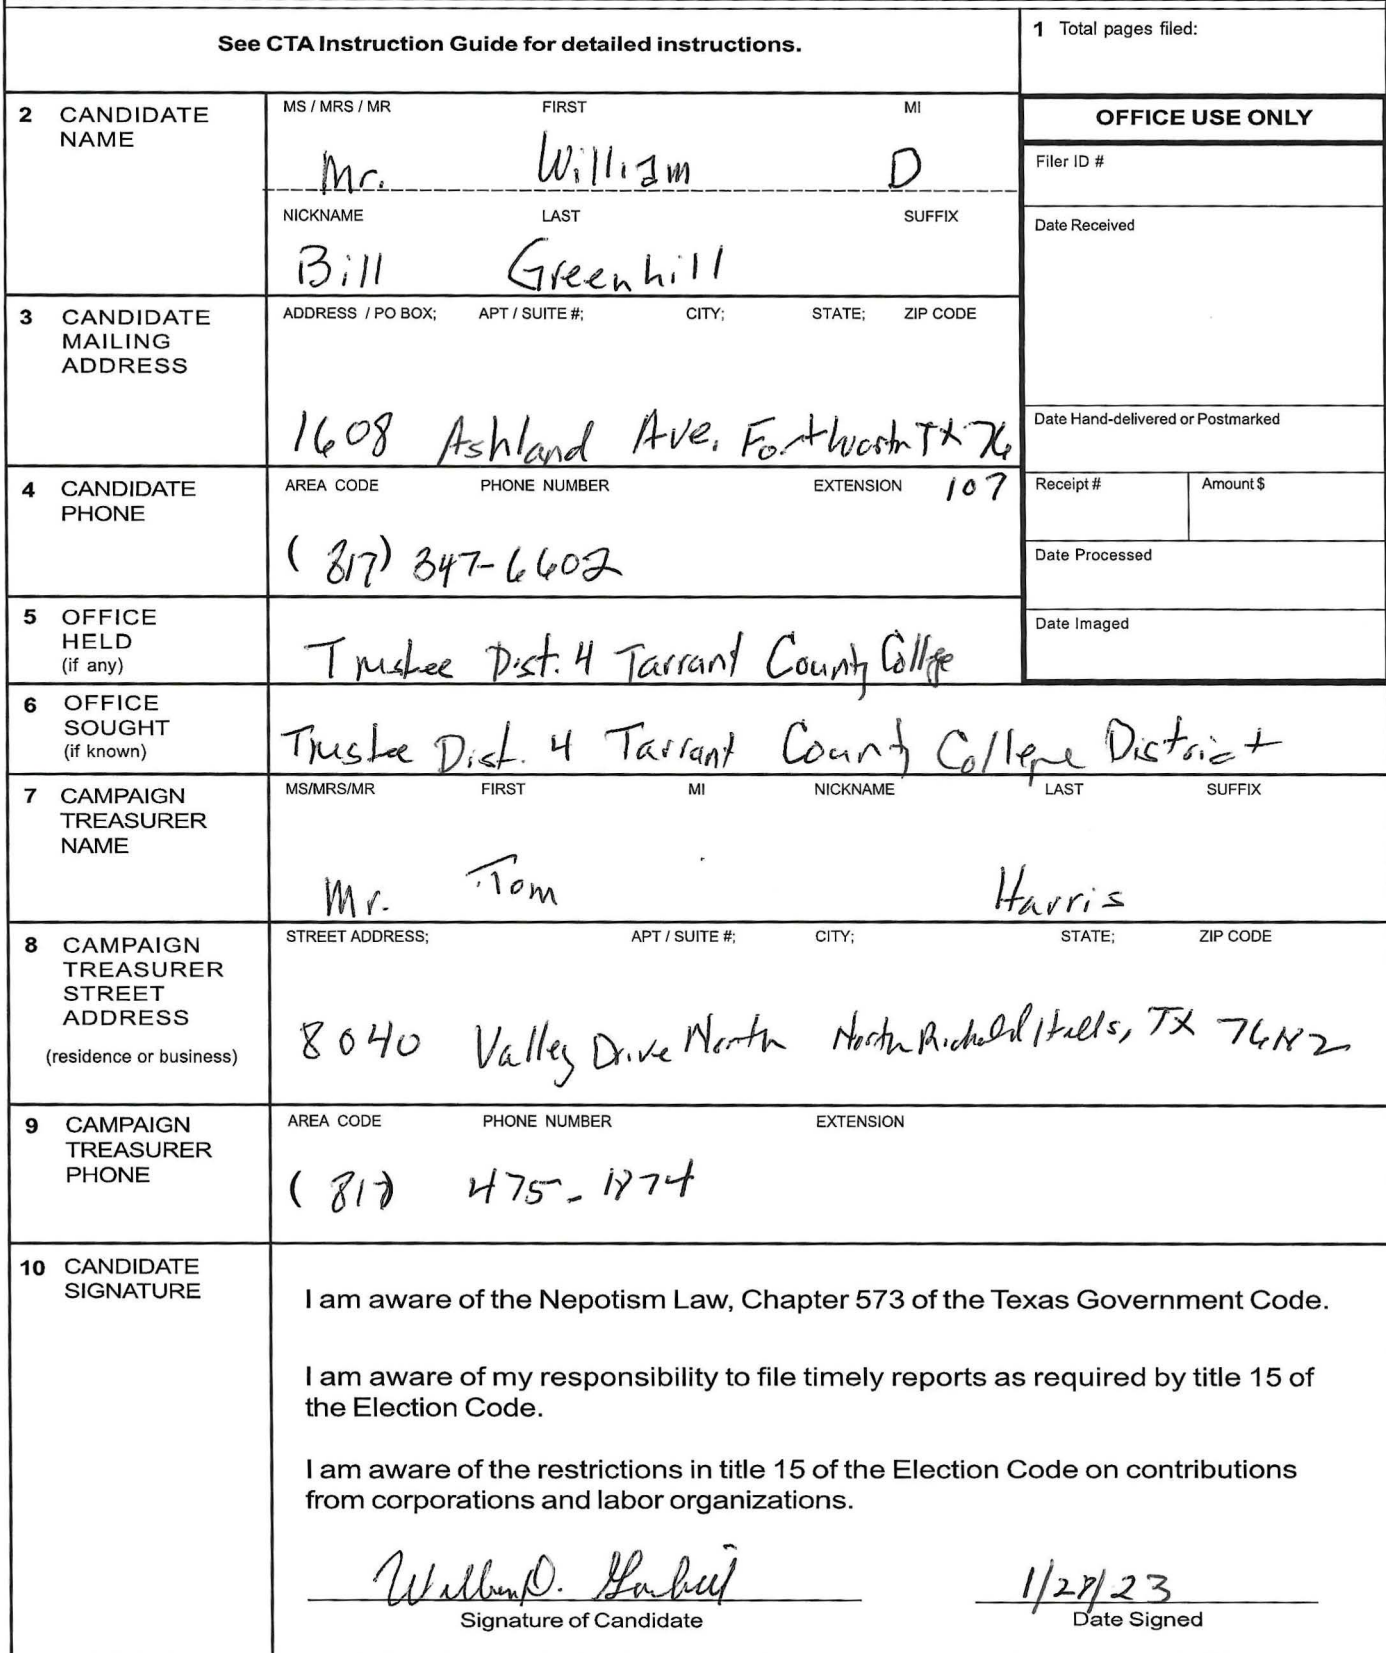 See CTA Instruction Guide for detailed instructions.
1 Total pages filed:
2 CANDIDATE NAME
MS / MRS / MR FIRST MI
Mr. William D
NICKNAME LAST SUFFIX
Bill Greenhill
OFFICE USE ONLY
Filer ID #
Date Received
Date Hand-delivered or Postmarked
Receipt # Amount $
Date Processed
Date Imaged
3 CANDIDATE MAILING ADDRESS
ADDRESS / PO BOX; APT / SUITE #; CITY; STATE; ZIP CODE
1608 Ashland Ave. Fort Worth TX 76
107
4 CANDIDATE PHONE
AREA CODE PHONE NUMBER EXTENSION
(817) 347-6602
5 OFFICE HELD (if any)
Trustee Dist. 4 Tarrant County College
6 OFFICE SOUGHT (if known)
Trustee Dist. 4 Tarrant County College District
7 CAMPAIGN TREASURER NAME
MS/MRS/MR FIRST MI NICKNAME LAST SUFFIX
Mr. Tom Harris
8 CAMPAIGN TREASURER STREET ADDRESS (residence or business)
STREET ADDRESS; APT / SUITE #; CITY; STATE; ZIP CODE
8040 Valley Drive North North Richland Hills, TX 76182
9 CAMPAIGN TREASURER PHONE
AREA CODE PHONE NUMBER EXTENSION
(817) 475-1874
10 CANDIDATE SIGNATURE
I am aware of the Nepotism Law, Chapter 573 of the Texas Government Code.
I am aware of my responsibility to file timely reports as required by title 15 of
the Election Code.
I am aware of the restrictions in title 15 of the Election Code on contributions
from corporations and labor organizations.
William D. Greenhill
Signature of Candidate
Date Signed